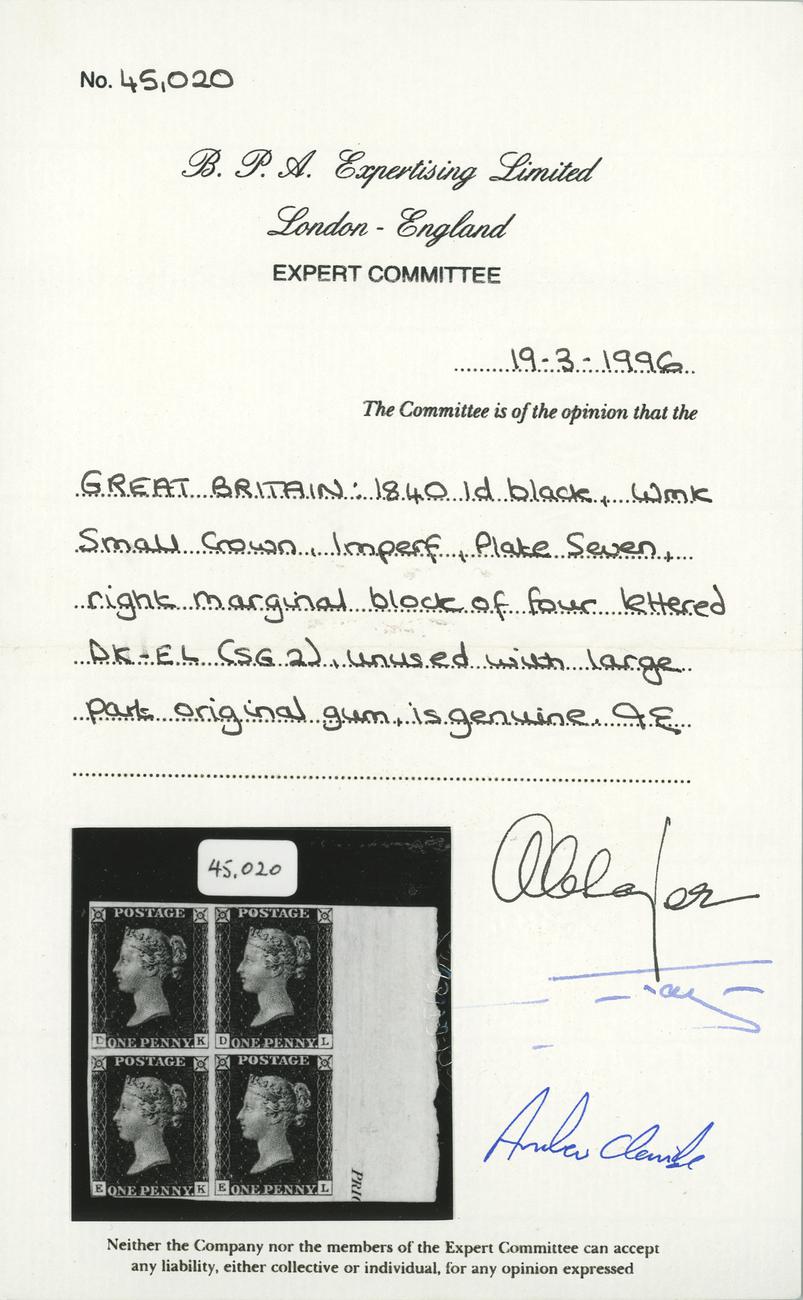 No. 45,020
B. P. A. Expertising Limited
London - England
EXPERT COMMITTEE
19-3-1996
The Committee is of the opinion that the
GREAT BRITAIN: 1840 1d black, Wmk
Small Crown, Imperf, Plate Seven,
right marginal block of four lettered
DK-EL (SG 2), unused with large
part original gum, is genuine.
45,020
POSTAGE POSTAGE
D ONE PENNY. K D ONE PENNY. L
POSTAGE POSTAGE
E ONE PENNY. K E ONE PENNY. L
PRIC
Neither the Company nor the members of the Expert Committee can accept
any liability, either collective or individual, for any opinion expressed